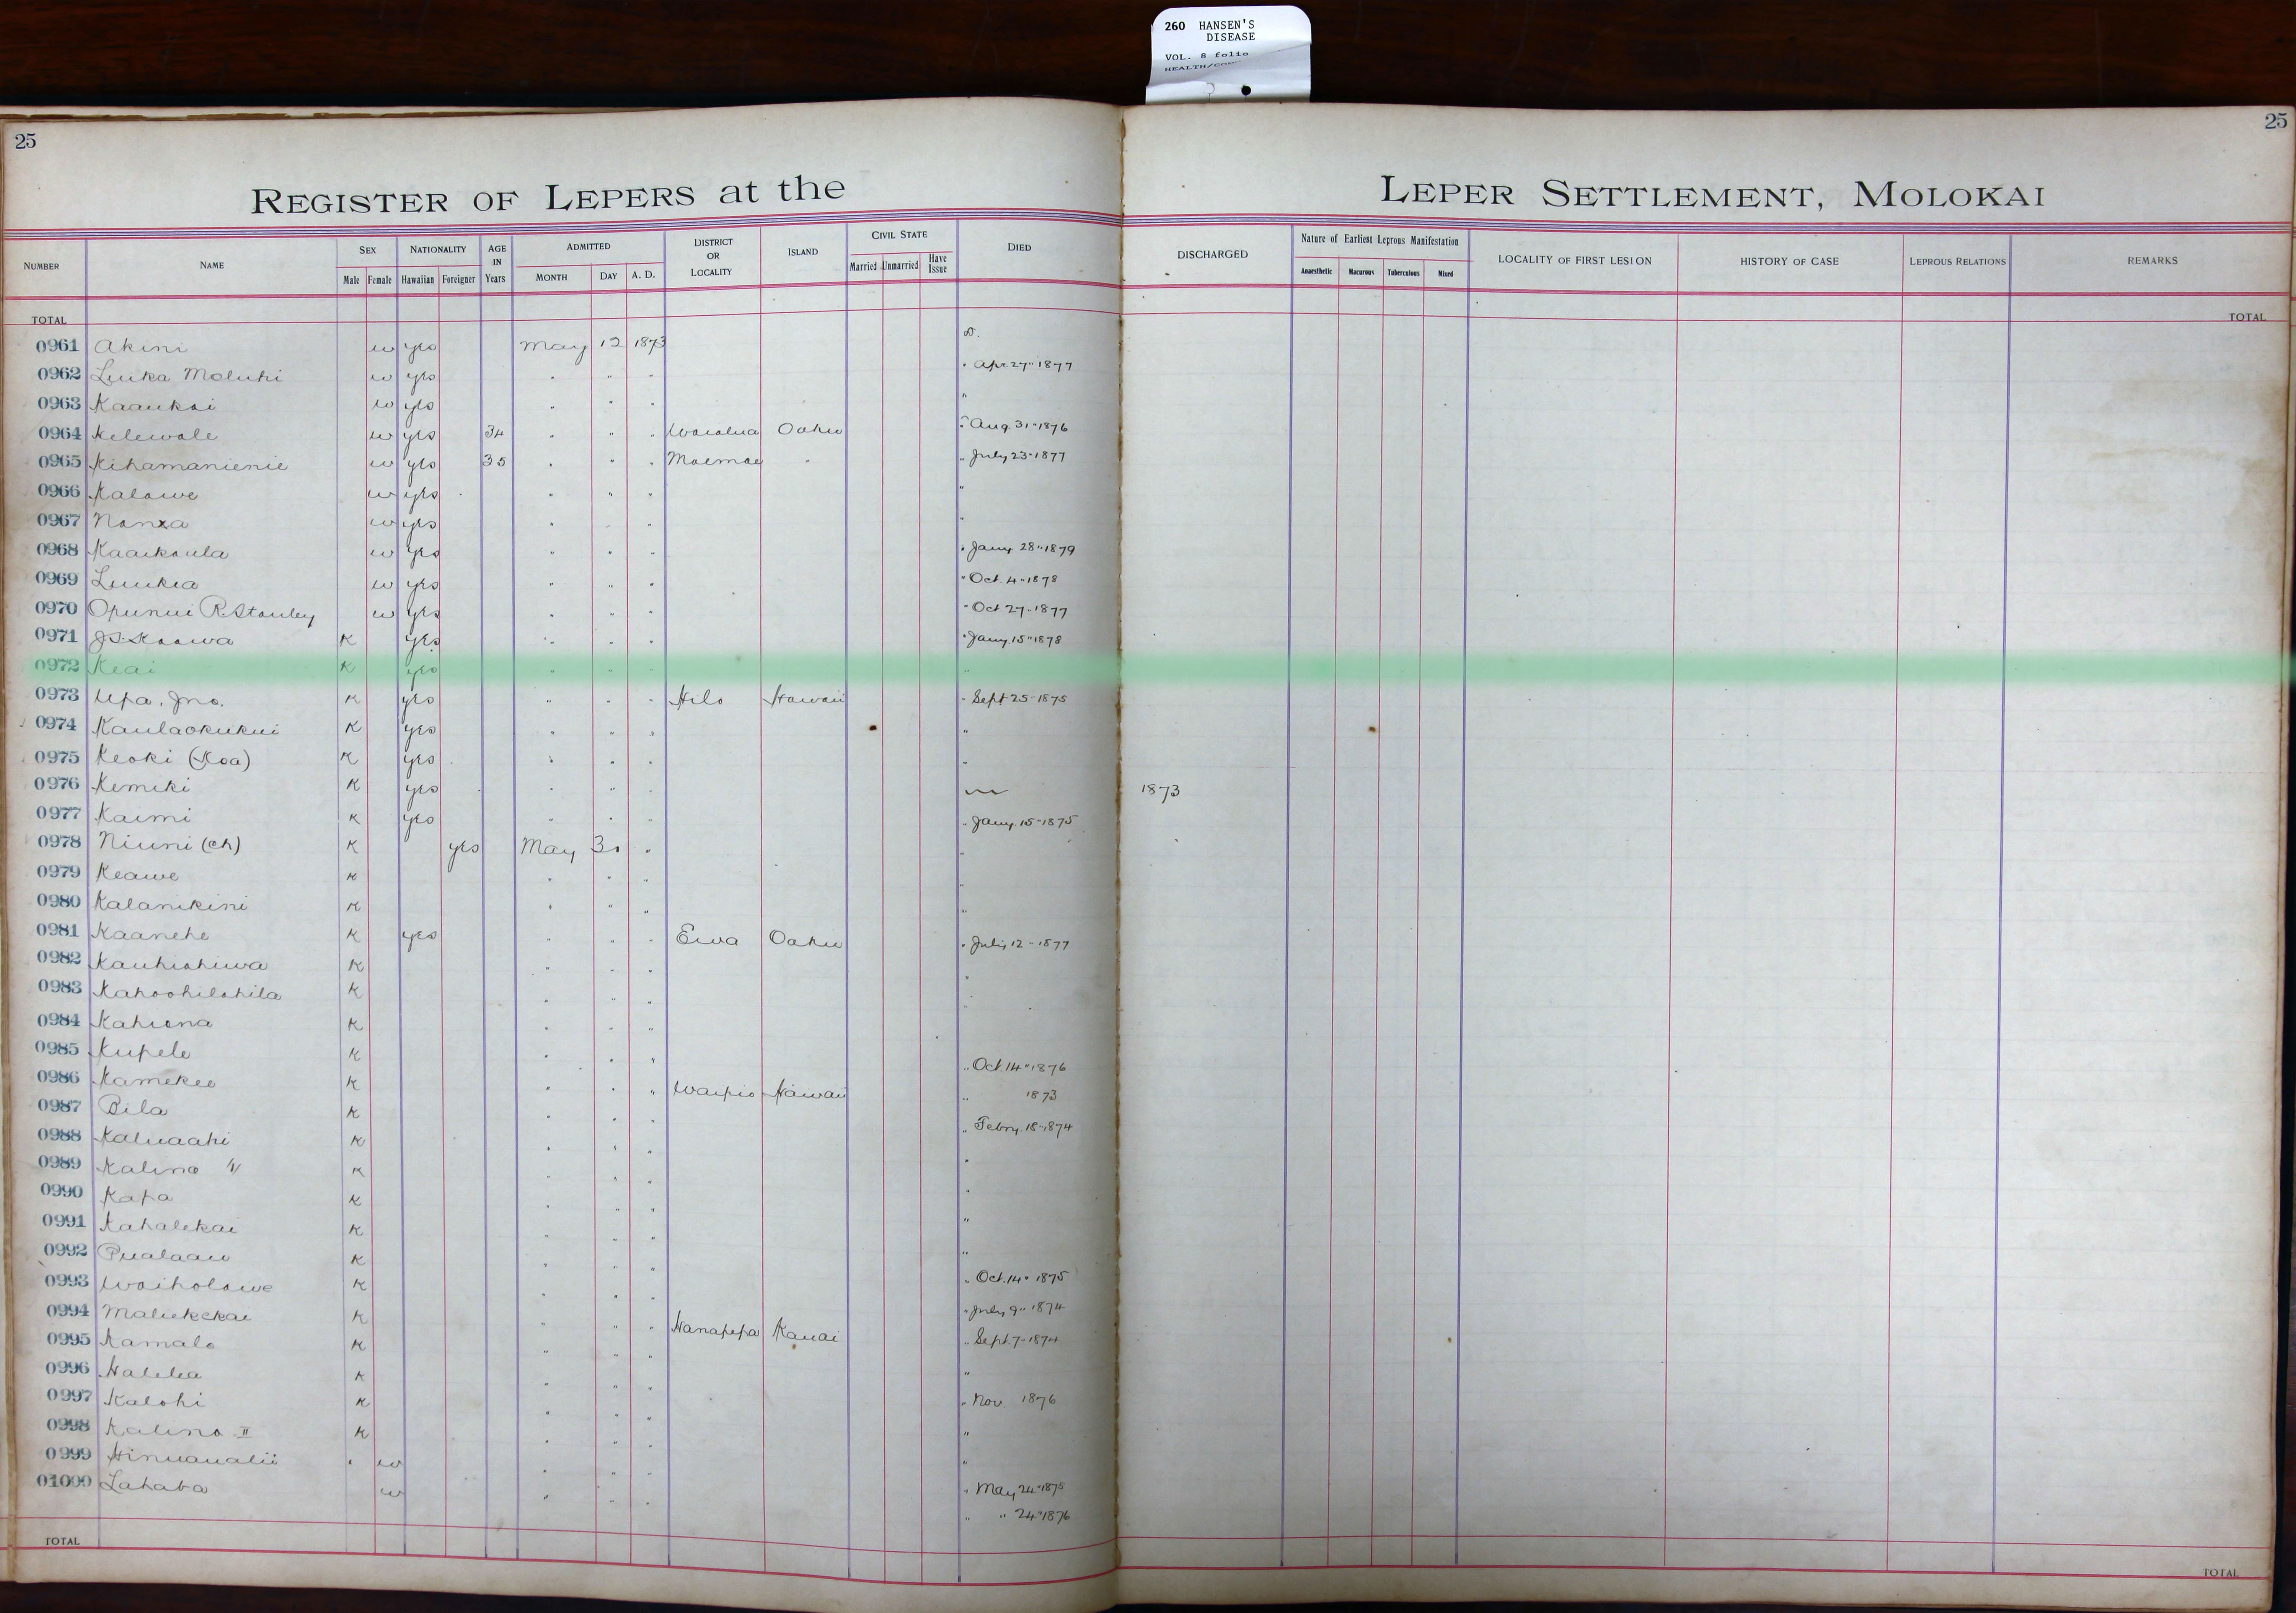 260 HANSEN'S
DISEASE
VOL. 8 folio
25
25
REGISTER OF LEPERS at the LEPER SETTLEMENT, MOLOKAI
NUMBER NAME SEX Male Female NATIONALITY Hawaiian Foreigner AGE IN Years ADMITTED MONTH DAY A. D. DISTRICT OR LOCALITY ISLAND CIVIL STATE Married Unmarried Have Issue DIED DISCHARGED Nature of Earliest Leprous Manifestation Anaesthetic Macurous Tuberculous Mixed LOCALITY OF FIRST LESION HISTORY OF CASE LEPROUS RELATIONS REMARKS
TOTAL TOTAL
0961 Akini w yes May 12 1873 D.
0962 Luika Moluhi w yes " " " " Apr. 27" 1877
0963 Kaaukai w yes " " " "
0964 Kelewale w yes 34 " " " Waialua Oahu " Aug. 31" 1876
0965 Kihamanienie w yes 35 " " " Moemoe " " July 23" 1877
0966 Kalawe w yes " " " "
0967 w yes " " " "
0968 Kaaikaula w yes " " " " Jany. 28" 1879
0969 Luukia w yes " " " " Oct. 4" 1878
0970 Opunui R. Stanley w yes " " " " Oct 27" 1877
0971 J.S. Kaawa K yes " " " " Jany. 15" 1878
0972 Keai K yes " " " "
0973 Upa. Jno. K yes " " " Hilo Hawaii " Sept 25" 1875
0974 Kaulaokukui K yes " " " "
0975 Keoki (Koa) K yes " " " "
0976 Kemiki K yes " " " 1873
0977 Kaimi K yes " " " " Jany. 15" 1875
0978 Niuni (ch) K yes May 30 " "
0979 Keawe K " " " "
0980 Kalanikini K " " " "
0981 Kaanehe K yes " " " Ewa Oahu " July 12" 1877
0982 Kauhiohiwa K " " " "
0983 Kahoohilohila K " " " "
0984 Kahiona K " " "
0985 Kupele K " " " " Oct. 14" 1876
0986 Kamekeo K " " " Waipio Hawaii " 1873
0987 Bila K " " " " Febry. 18" 1874
0988 Kaluaahi K " " " "
0989 Kalino K " " " "
0990 Kapa K " " " "
0991 Kahalekai K " " " "
0992 Pualaau K " " " " Oct. 14" 1875
0993 Waiholowe K " " " " July 9" 1874
0994 Maliekekai K " " " Hanapepa Kauai " Sept. 7" 1874
0995 Kamalo K " " " "
0996 Halelea K " " " " Nov. 1876
0997 Kalohi K " " " "
0998 Kalino II K " " " "
0999 Hinuaualii w " " " " May 24" 1875
01000 Lahaba w " " " " " 24" 1876
TOTAL TOTAL